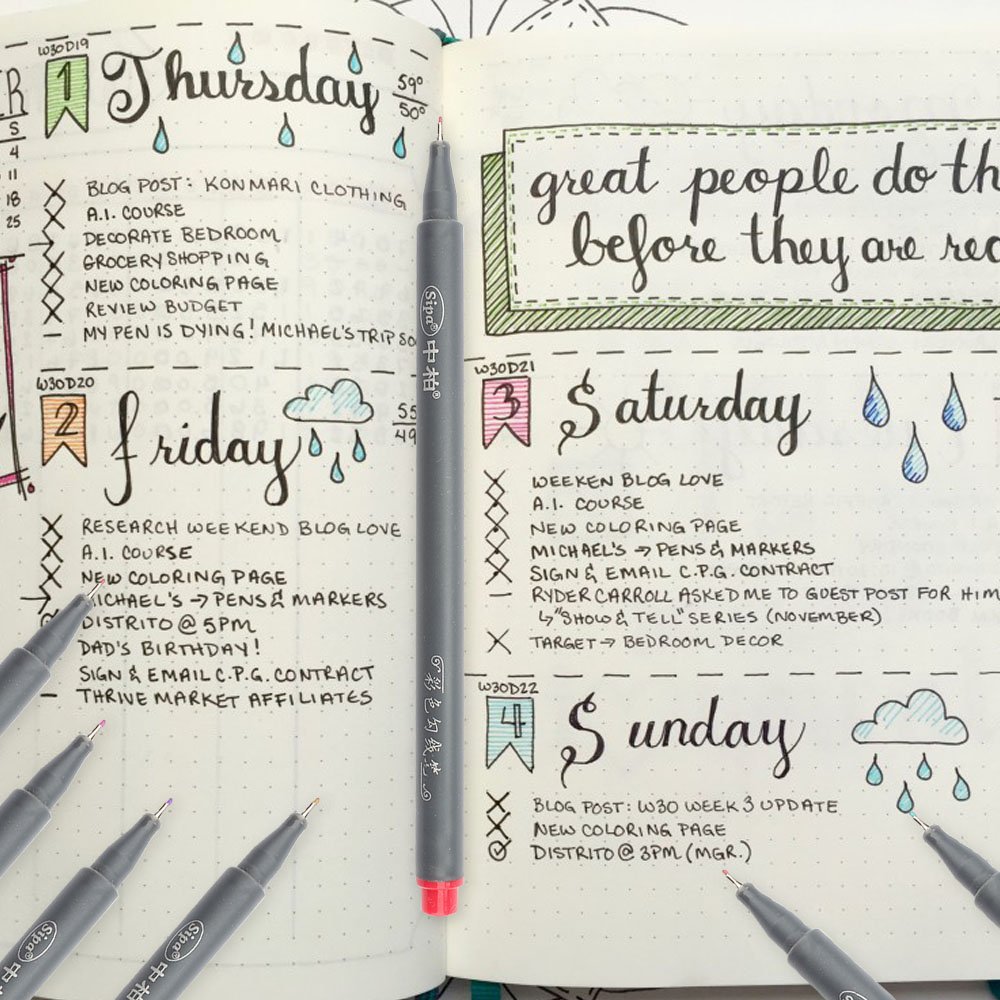 W30D19
1 Thursday 59° 50°
R
S
4
11
18
25
BLOG POST: KONMARI CLOTHING
A.I. COURSE
DECORATE BEDROOM
GROCERY SHOPPING
NEW COLORING PAGE
REVIEW BUDGET
MY PEN IS DYING! MICHAEL'S TRIP
W30D20
2 Friday 55 49
RESEARCH WEEKEND BLOG LOVE
A.I. COURSE
NEW COLORING PAGE
MICHAEL'S → PENS & MARKERS
DISTRITO @ 5PM
DAD'S BIRTHDAY!
SIGN & EMAIL C.P.G. CONTRACT
THRIVE MARKET AFFILIATES
Sipa® 中柏®
彩色勾线笔
great people do th
before they are rea
W30D21
3 Saturday
WEEKEN BLOG LOVE
A.I. COURSE
NEW COLORING PAGE
MICHAEL'S → PENS & MARKERS
SIGN & EMAIL C.P.G. CONTRACT
RYDER CARROLL ASKED ME TO GUEST POST FOR HIM
↳ "SHOW & TELL" SERIES (NOVEMBER)
TARGET → BEDROOM DECOR
W30D22
4 Sunday
BLOG POST: W30 WEEK 3 UPDATE
NEW COLORING PAGE
DISTRITO @ 3PM (MGR.)
Sipa® 中
Sipa® 中柏
Sipa